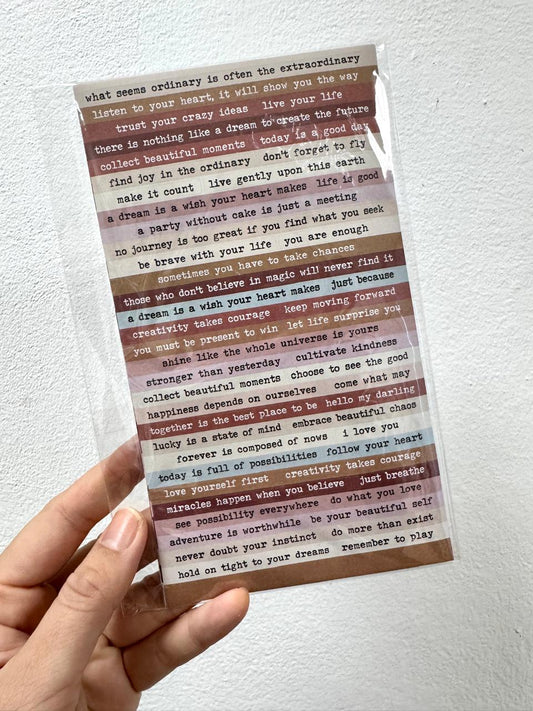 what seems ordinary is often the extraordinary
listen to your heart, it will show you the way
trust your crazy ideas live your life
there is nothing like a dream to create the future
collect beautiful moments today is a good day
find joy in the ordinary don't forget to fly
make it count live gently upon this earth
a dream is a wish your heart makes life is good
a party without cake is just a meeting
no journey is too great if you find what you seek
be brave with your life you are enough
sometimes you have to take chances
those who don't believe in magic will never find it
a dream is a wish your heart makes just because
creativity takes courage keep moving forward
you must be present to win let life surprise you
shine like the whole universe is yours
stronger than yesterday cultivate kindness
collect beautiful moments choose to see the good
happiness depends on ourselves come what may
together is the best place to be hello my darling
lucky is a state of mind embrace beautiful chaos
forever is composed of nows i love you
today is full of possibilities follow your heart
love yourself first creativity takes courage
miracles happen when you believe just breathe
see possibility everywhere do what you love
adventure is worthwhile be your beautiful self
never doubt your instinct do more than exist
hold on tight to your dreams remember to play